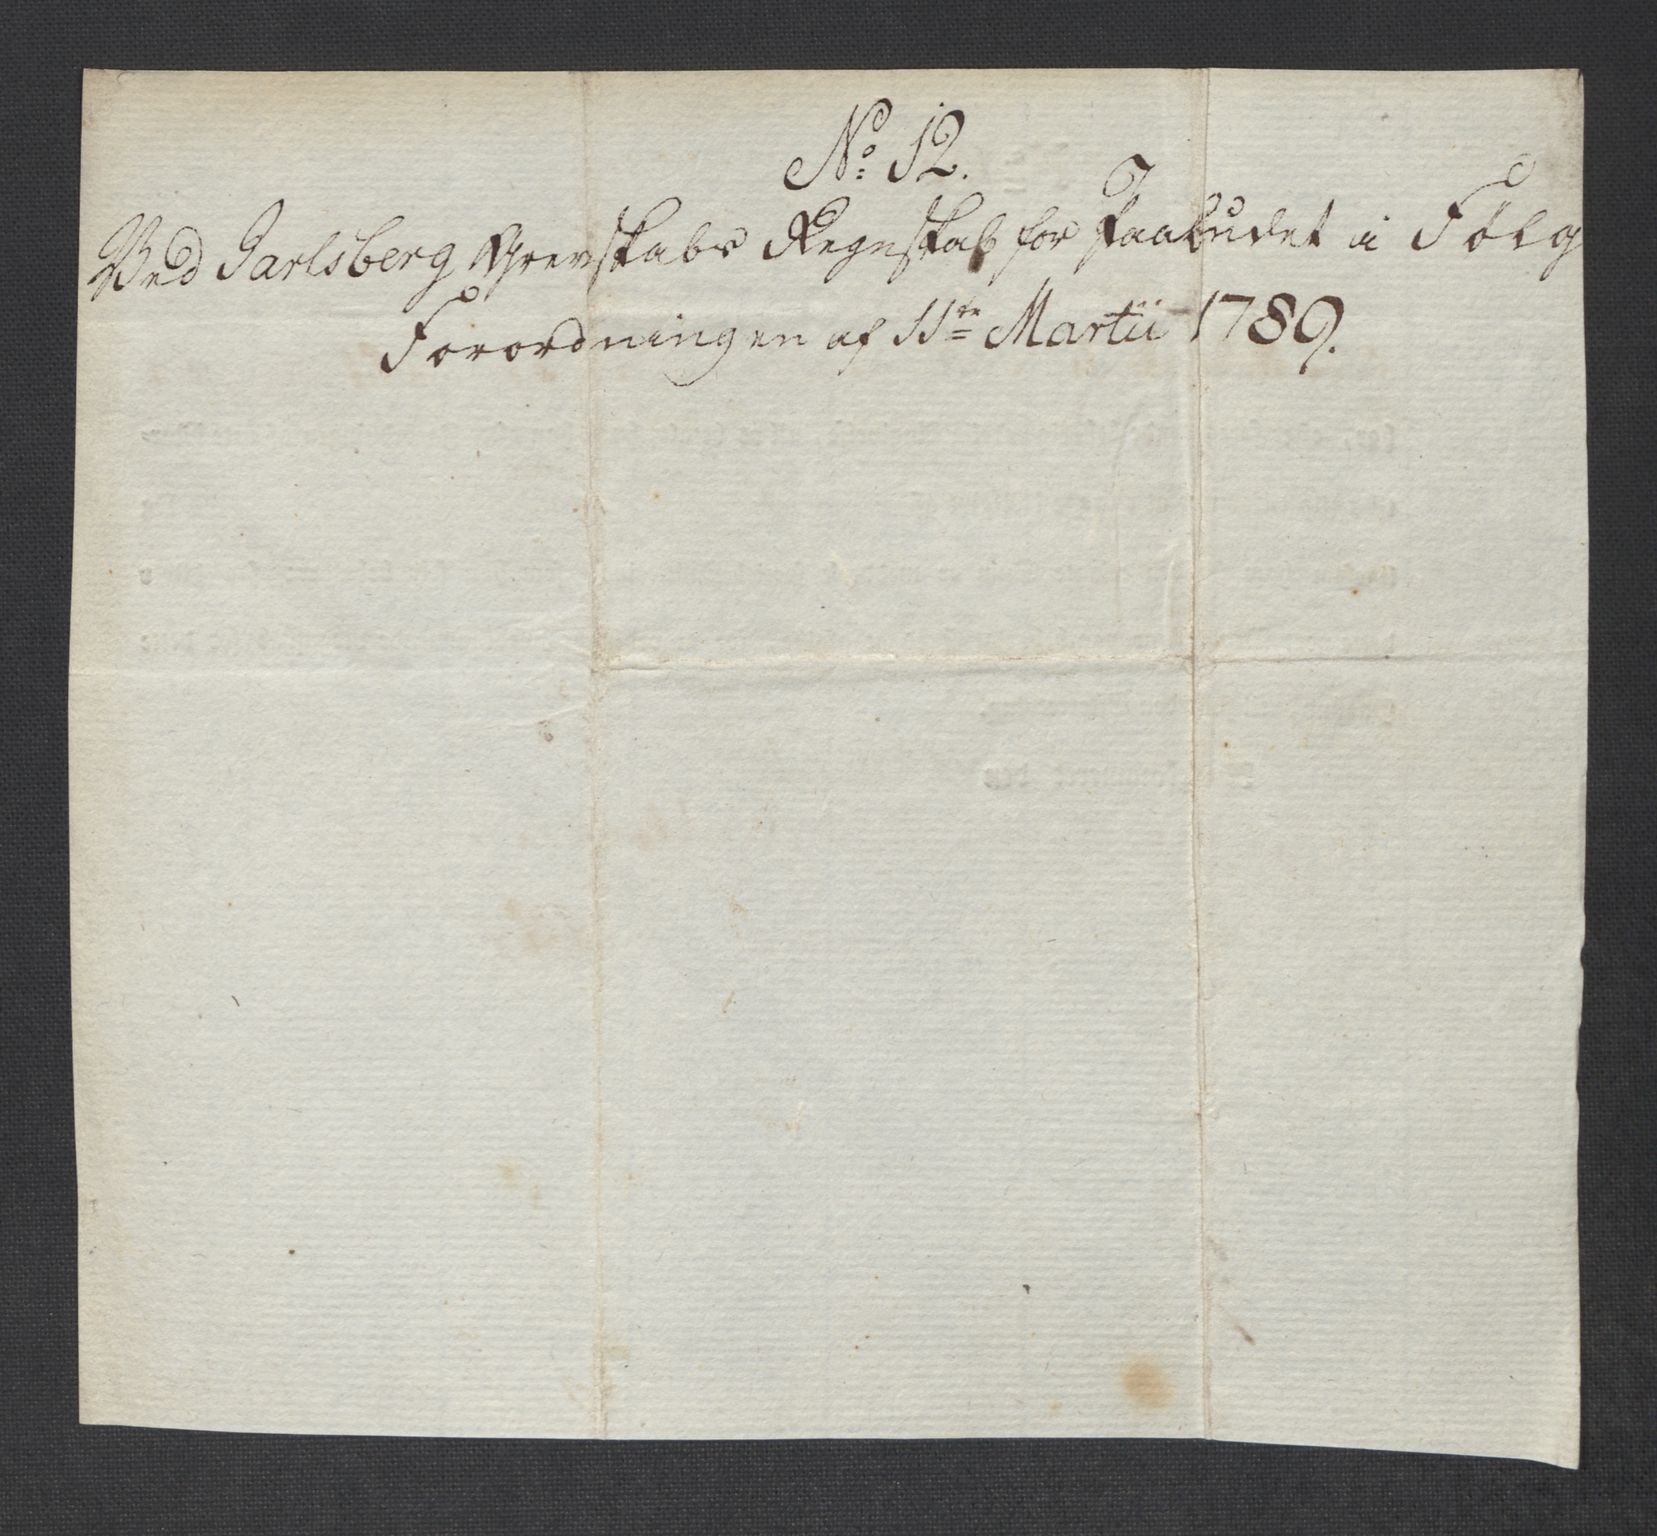 No: 12.
Ved Jarlsberg Grevskabs Regnskab for Paabudet i Følg
Forordningen af 11te Martii 1789.